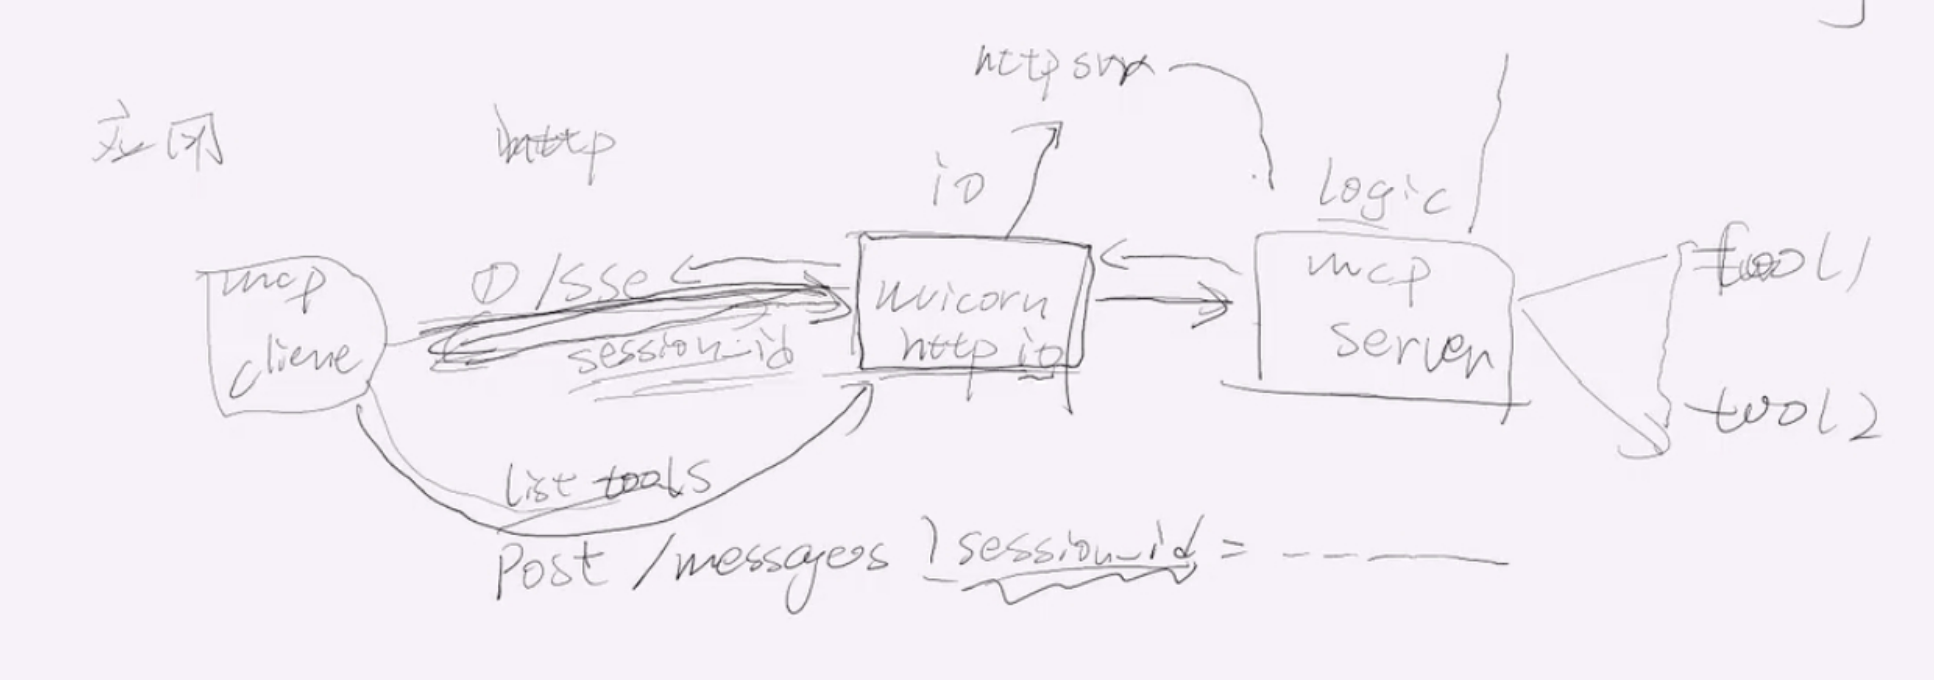 http svr
应用 http
io
logic
mcp
client
① /sse
session_id
uvicorn
http io
mcp
server
tool1
tool2
list tools
Post /messages ? session_id = ---